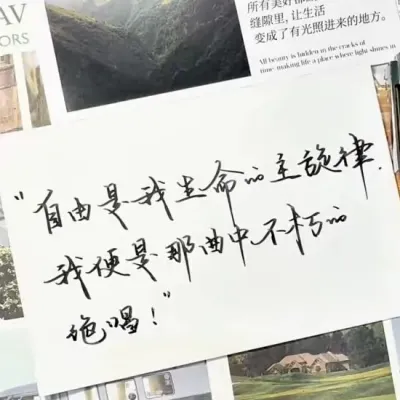 AV
ORS
缝隙里,让生活
变成了有光照进来的地方。
All beauty is hidden in the cracks of
time making life a place where light shines in
"自由是我生命的主旋律.
我便是那曲中不朽的
绝唱!"